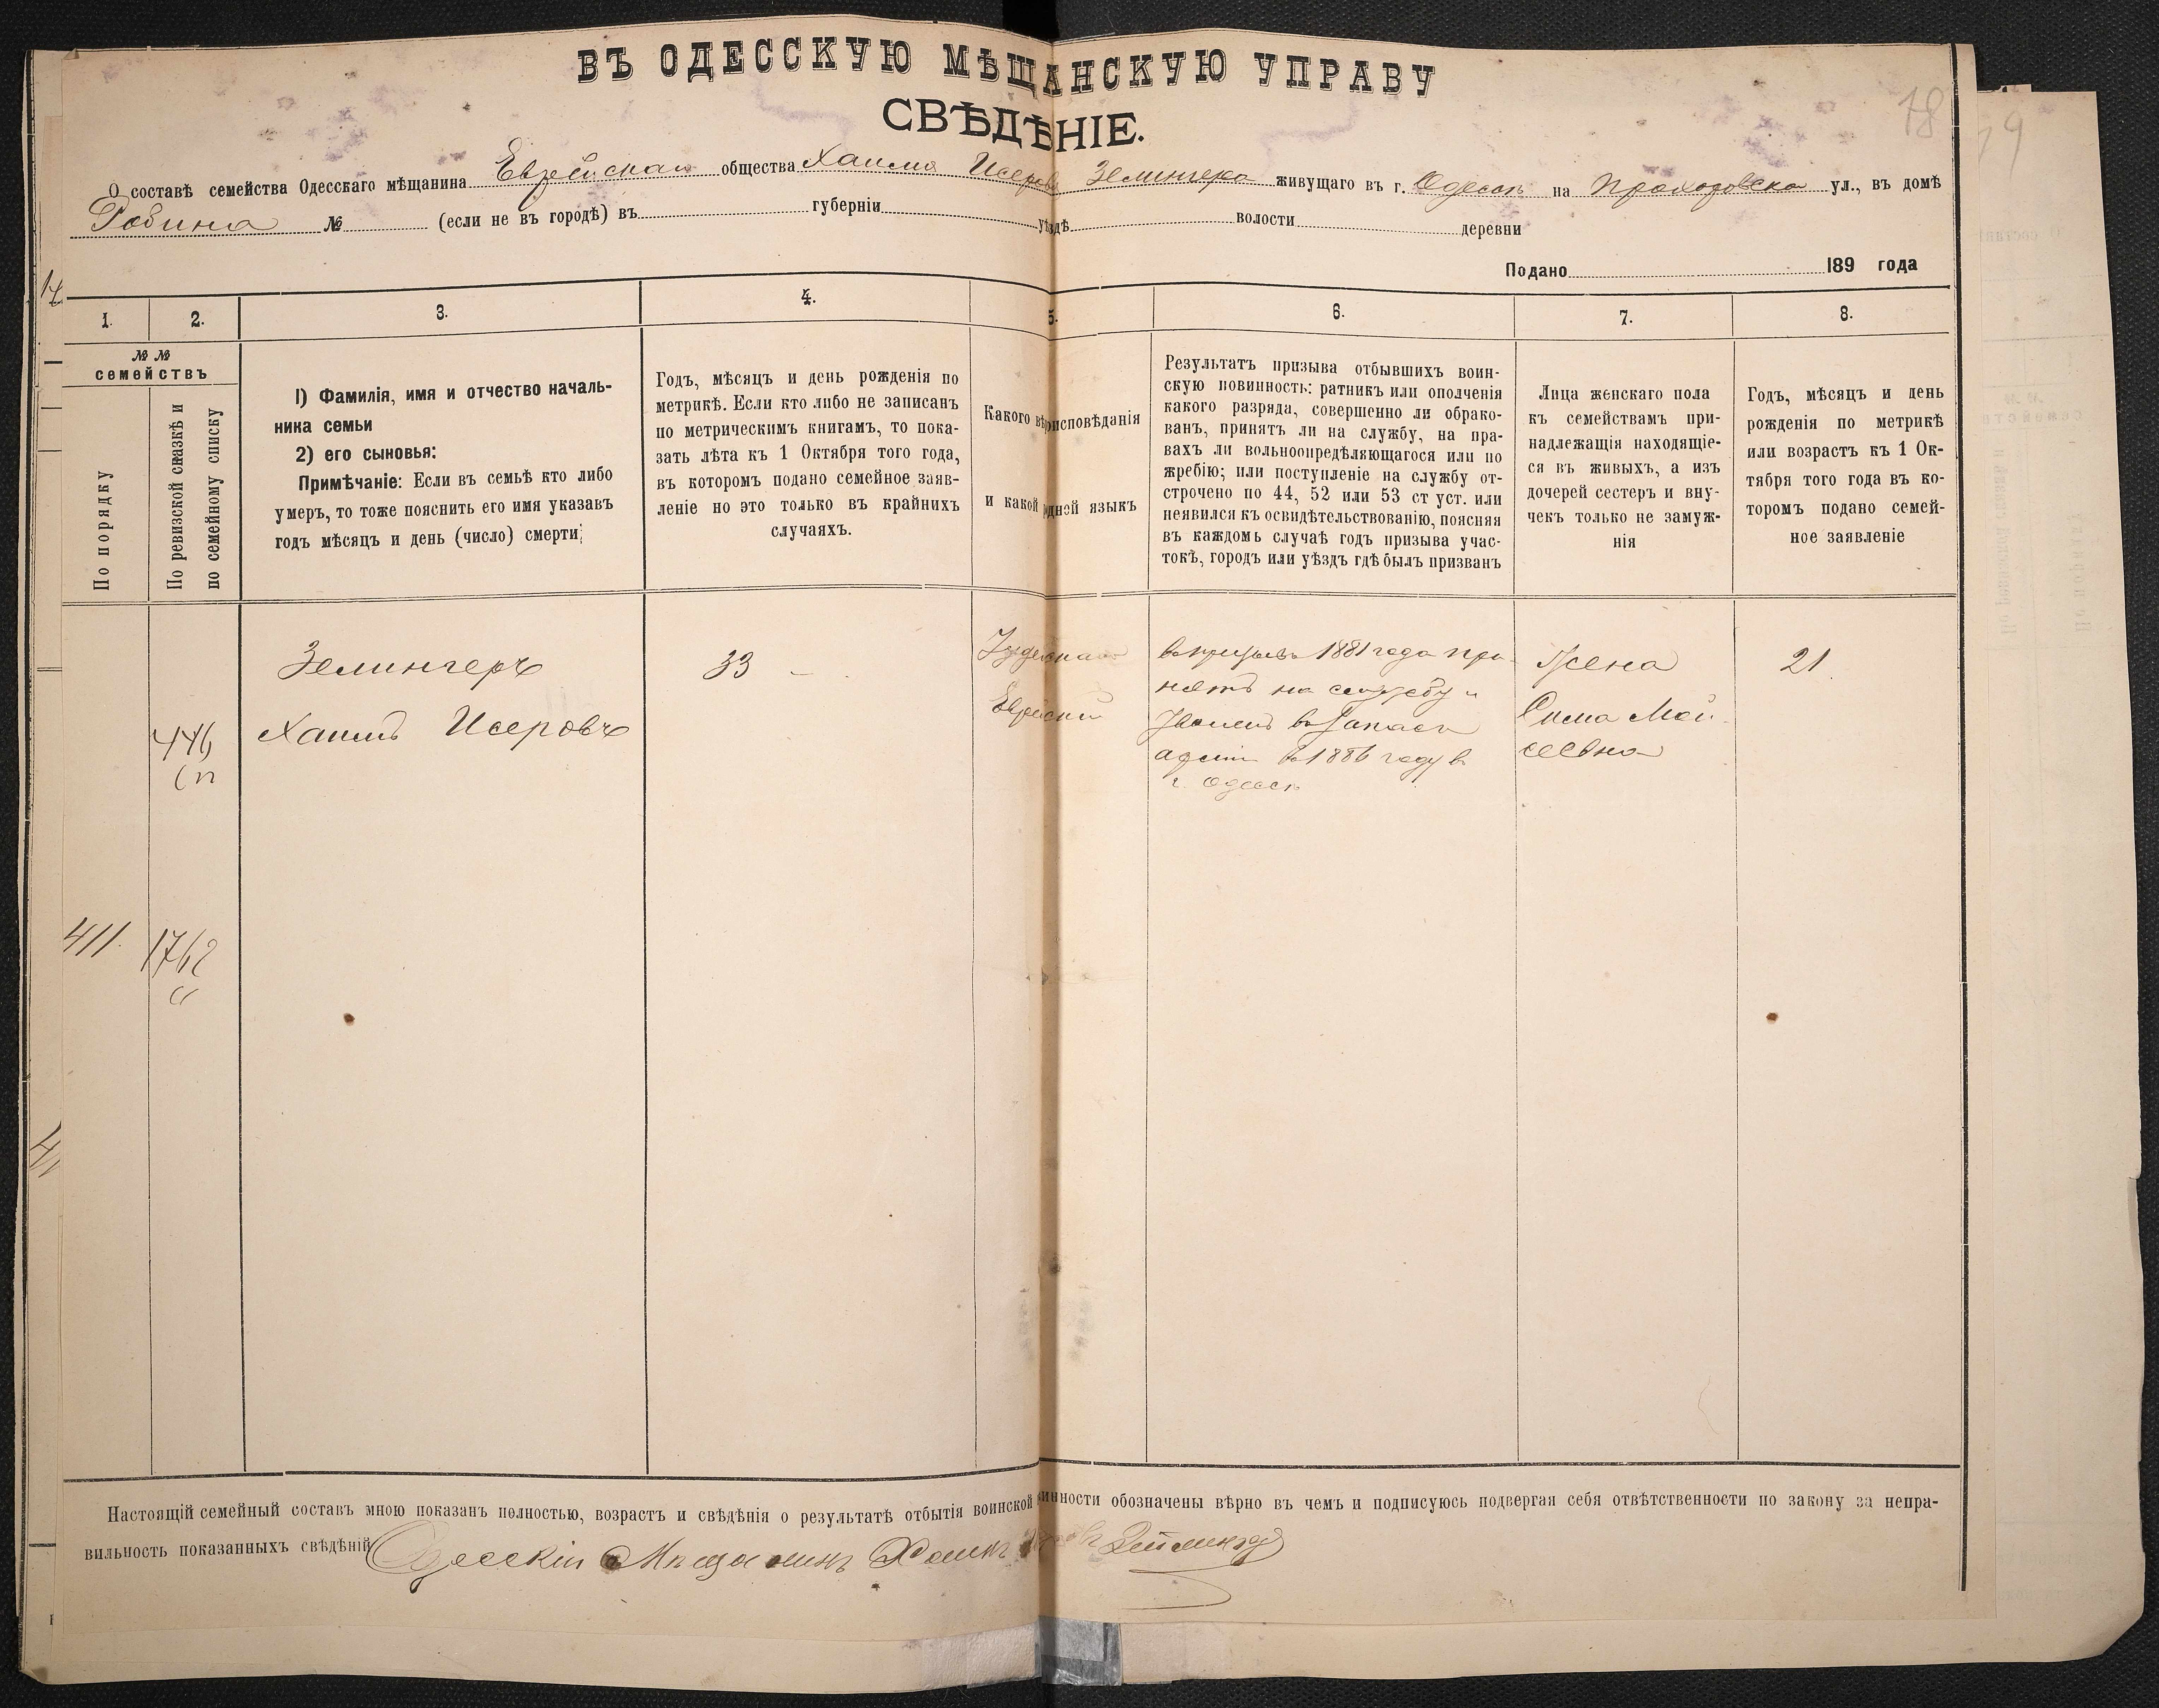 ВЪ ОДЕССКУЮ МѢЩАНСКУЮ УПРАВУ
СВѢДѢНІЕ.
18
19
О составѣ семейства Одесскаго мѣщанина Еврейскаго общества Хаима Исерова Зелингера живущаго въ г. Одессѣ на Прохоровской ул., въ домѣ
Рабина № (если не въ городѣ) въ губерніи уѣздѣ волости деревни
Подано 189 года
1. 2. 3. 4. 5. 6. 7. 8.
№ №
семействъ
По порядку
По ревизской сказкѣ и
по семейному списку
1) Фамилія, имя и отчество началь-
ника семьи
2) его сыновья:
Примѣчаніе: Если въ семьѣ кто либо
умеръ, то тоже пояснить его имя указавъ
годъ мѣсяцъ и день (число) смерти;
Годъ, мѣсяцъ и день рожденія по
метрикѣ. Если кто либо не записанъ
по метрическимъ книгамъ, то пока-
зать лѣта къ 1 Октября того года,
въ которомъ подано семейное заяв-
леніе но это только въ крайнихъ
случаяхъ.
Какого вѣроисповѣданія
и какой родной языкъ
Результатъ призыва отбывшихъ воин-
скую повинность: ратникъ или ополченія
какого разряда, совершенно ли обрако-
ванъ, принятъ ли на службу, на пра-
вахъ ли вольноопредѣляющагося или по
жребію; или поступленіе на службу от-
строчено по 44, 52 или 53 ст уст. или
неявился къ освидѣтельствованію, поясняя
въ каждомъ случаѣ годъ призыва учас-
токъ, городъ или уѣздъ гдѣ былъ призванъ
Лица женскаго пола
къ семействамъ при-
надлежащія находящіе-
ся въ живыхъ, а изъ
дочерей сестеръ и вну-
чекъ только не замуж-
нія
Годъ, мѣсяцъ и день
рожденія по метрикѣ
или возрастъ къ 1 Ок-
тября того года въ ко-
торомъ подано семей-
ное заявленіе
446
411. 1762
Зелингеръ
Хаимъ Исеровъ
33
Іудейская
Еврейскій
въ призывъ 1881 года при-
нятъ на службу и
уволенъ въ запасъ
арміи въ 1886 году въ
г. Одессѣ
Жена
Сима Мой-
сеевна
21
Настоящій семейный составъ мною показанъ полностью, возрастъ и свѣдѣнія о результатѣ отбытія воинской повинности обозначены вѣрно въ чемъ и подписуюсь подвергая себя отвѣтственности по закону за непра-
вильность показанныхъ свѣдѣній Одесскій Мѣщанинъ Хаимъ